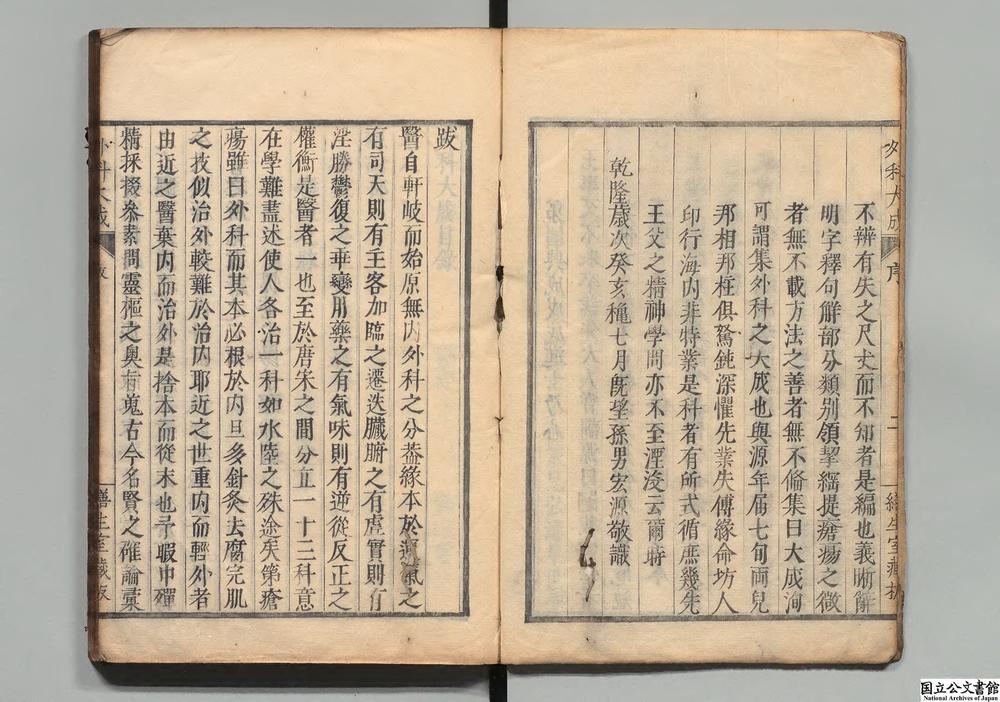 外科大成 序 二 繕生室藏板
不辨有失之尺丈而不知者是編也義晰辭
明字釋句解部分類別領挈綱提瘡瘍之微
者無不載方法之善者無不備集曰大成洵
可謂集外科之大成也與源年届七旬両兒
邦相邦柱俱駑鈍深懼先業失傅緣命坊人
印行海内非特業是科者有所式循庶幾先
王父之精神學問亦不至湮没云爾時
乾隆歳次癸亥穐七月旣望孫男宏源敬識
跋
醫自軒岐而始原無内外科之分葢緣本於運氣之
有司天則有主客加臨之遷迭臟腑之有虛實則有
淫勝鬱復之乖變用藥之有氣味則有逆從反正之
權衡是醫者一也至於唐宋之間分立一十三科意
在學難盡述使人各治一科如水陸之殊途矣第瘡
瘍雖曰外科而其本必根於内且多針灸去腐完肌
之技似治外較難於治内耶近之世重内而輕外者
由近之醫棄内而治外是捨本而從末也予暇中殫
精採掇叅素問靈樞之奥㫖蒐古今名賢之確論彙
外科大成 跋 繕生室藏板
国立公文書館
National Archives of Japan